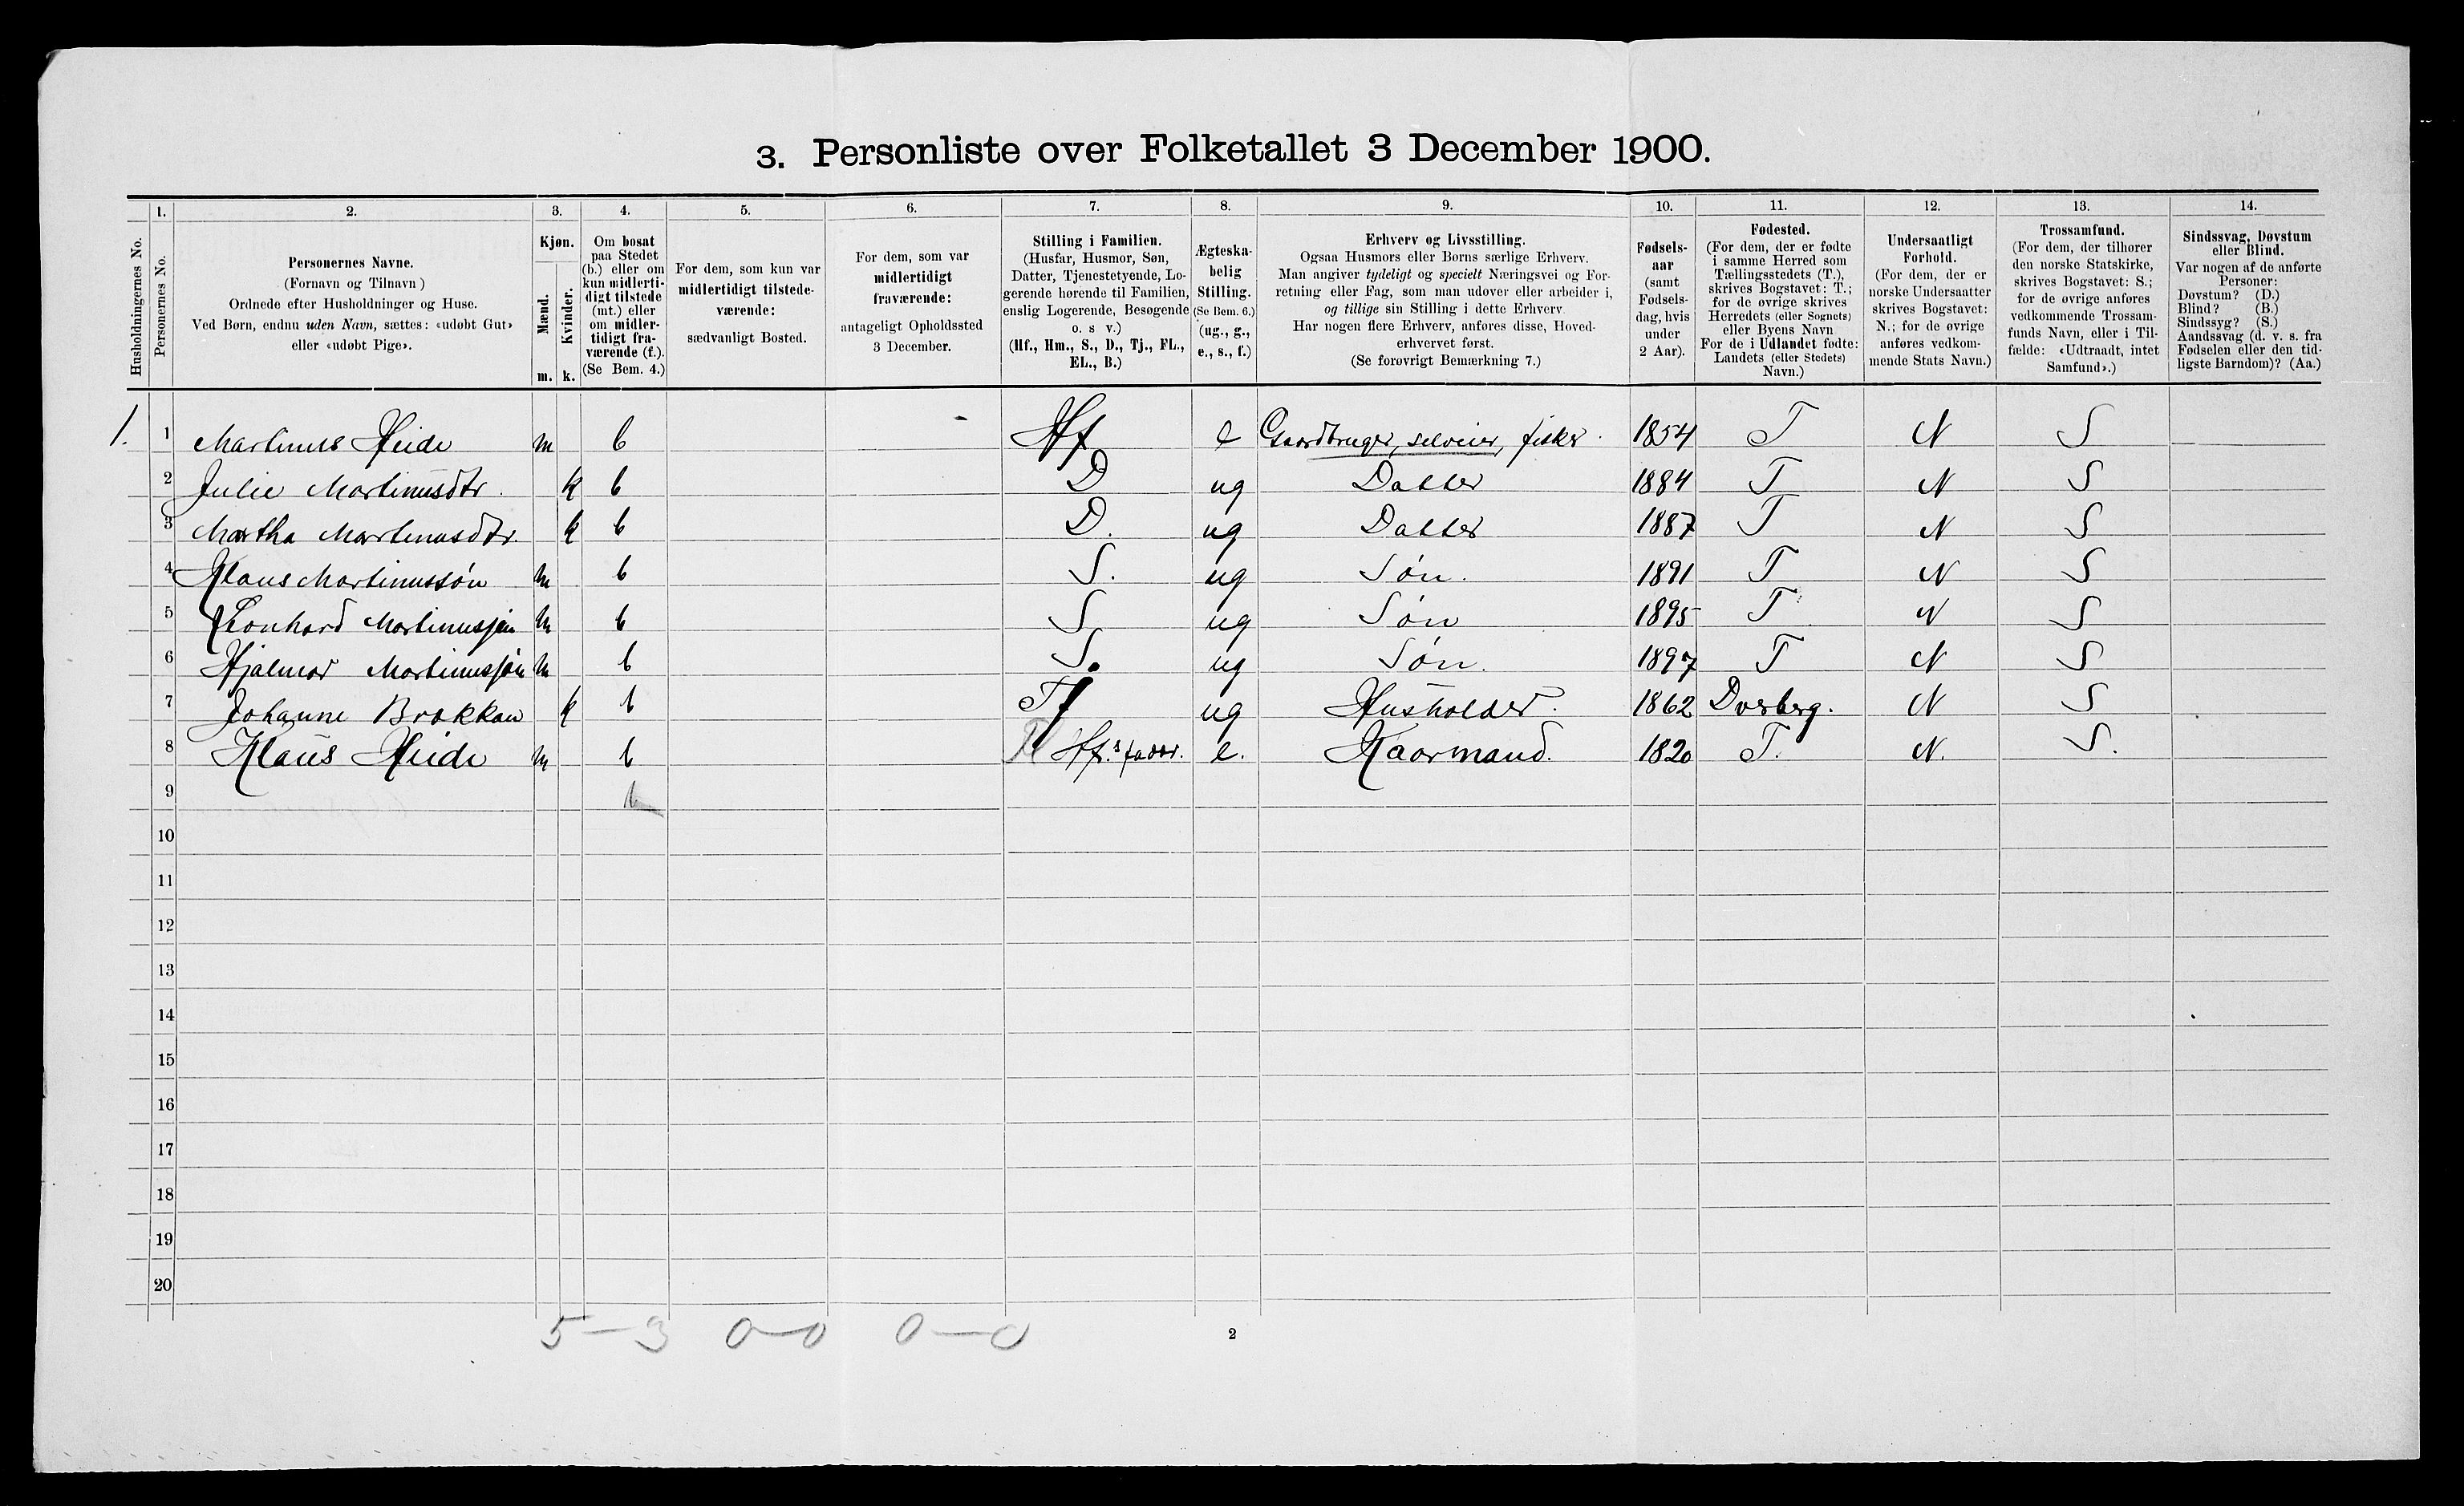 3. Personliste over Folketallet 3 December 1900.
1. 2. 3. 4. 5. 6. 7. 8. 9. 10. 11. 12. 13. 14.
Husholdningernes No.
Personernes No.
Personernes Navne.
(Fornavn og Tilnavn)
Ordnede efter Husholdninger og Huse.
Ved Børn, endnu uden Navn, sættes: «udøbt Gut»
eller «udøbt Pige».
Kjøn.
Mænd.
Kvinder.
m. k.
Om bosat
paa Stedet
(b.) eller om
kun midlerti-
digt tilstede
(mt.) eller
om midler-
tidigt fra-
værende (f.).
(Se Bem. 4.)
For dem, som kun var
midlertidigt tilstede-
værende:
sædvanligt Bosted.
For dem, som var
midlertidigt
fraværende:
antageligt Opholdssted
3 December.
Stilling i Familien.
(Husfar, Husmor, Søn,
Datter, Tjenestetyende, Lo-
gerende hørende til Familien,
enslig Logerende, Besøgende
o. s v.)
(Hf., Hm., S., D., Tj., FL.,
EL., B.)
Ægteska-
belig
Stilling.
(Se Bem. 6.)
(ug., g.,
e., s., f.)
Erhverv og Livsstilling.
Ogsaa Husmors eller Børns særlige Erhverv.
Man angiver tydeligt og specielt Næringsvei og For-
retning eller Fag, som man udøver eller arbeider i,
og tillige sin Stilling i dette Erhverv.
Har nogen flere Erhverv, anføres disse, Hoved-
erhvervet først.
(Se forøvrigt Bemærkning 7.)
Fødsels-
aar
(samt
Fødsels-
dag, hvis
under
2 Aar).
Fødested.
(For dem, der er fødte
i samme Herred som
Tællingsstedets (T.),
skrives Bogstavet: T.;
for de øvrige skrives
Herredets (eller Sognets)
eller Byens Navn
For de i Udlandet fødte:
Landets (eller Stedets)
Navn.)
Undersaatligt
Forhold.
(For dem, der er
norske Undersaatter
skrives Bogstavet:
N.; for de øvrige
anføres vedkom-
mende Stats Navn.)
Trossamfund.
(For dem, der tilhører
den norske Statskirke,
skrives Bogstavet: S.;
for de øvrige anføres
vedkommende Trossam-
funds Navn, eller i Til-
fælde: «Udtraadt, intet
Samfund».)
Sindssvag, Døvstum
eller Blind.
Var nogen af de anførte
Personer:
Døvstum? (D.)
Blind? (B.)
Sindssyg? (S.)
Aandssvag (d. v. s. fra
Fødselen eller den tid-
ligste Barndom)? (Aa.)
1. 1 Martinus Heide m b Hf e Gaardbruger, selveier, fisker. 1854 T N S
2 Julie Martinusdtr. k b D ug Datter 1884 T N S
3 Martha Martinusdtr. k b D. ug Datter 1887 T N S
4 Klaus Martinussøn m b S. ug Søn. 1891 T N S
5 Leonhard Martinussøn m b S ug Søn 1895 T N S
6 Hjalmar Martinussøn m b S. ug Søn. 1897 T N S
7 Johanne Brokkan k b Tj ug Husholder. 1862 Ørberg. N S
8 Klaus Heide m b Hf.s fader. e. Kaarmand. 1820 T. N. S.
9 b
10
11
12
13
14
15
16
17
18
19
20
5 — 3 0—0 0—0
2